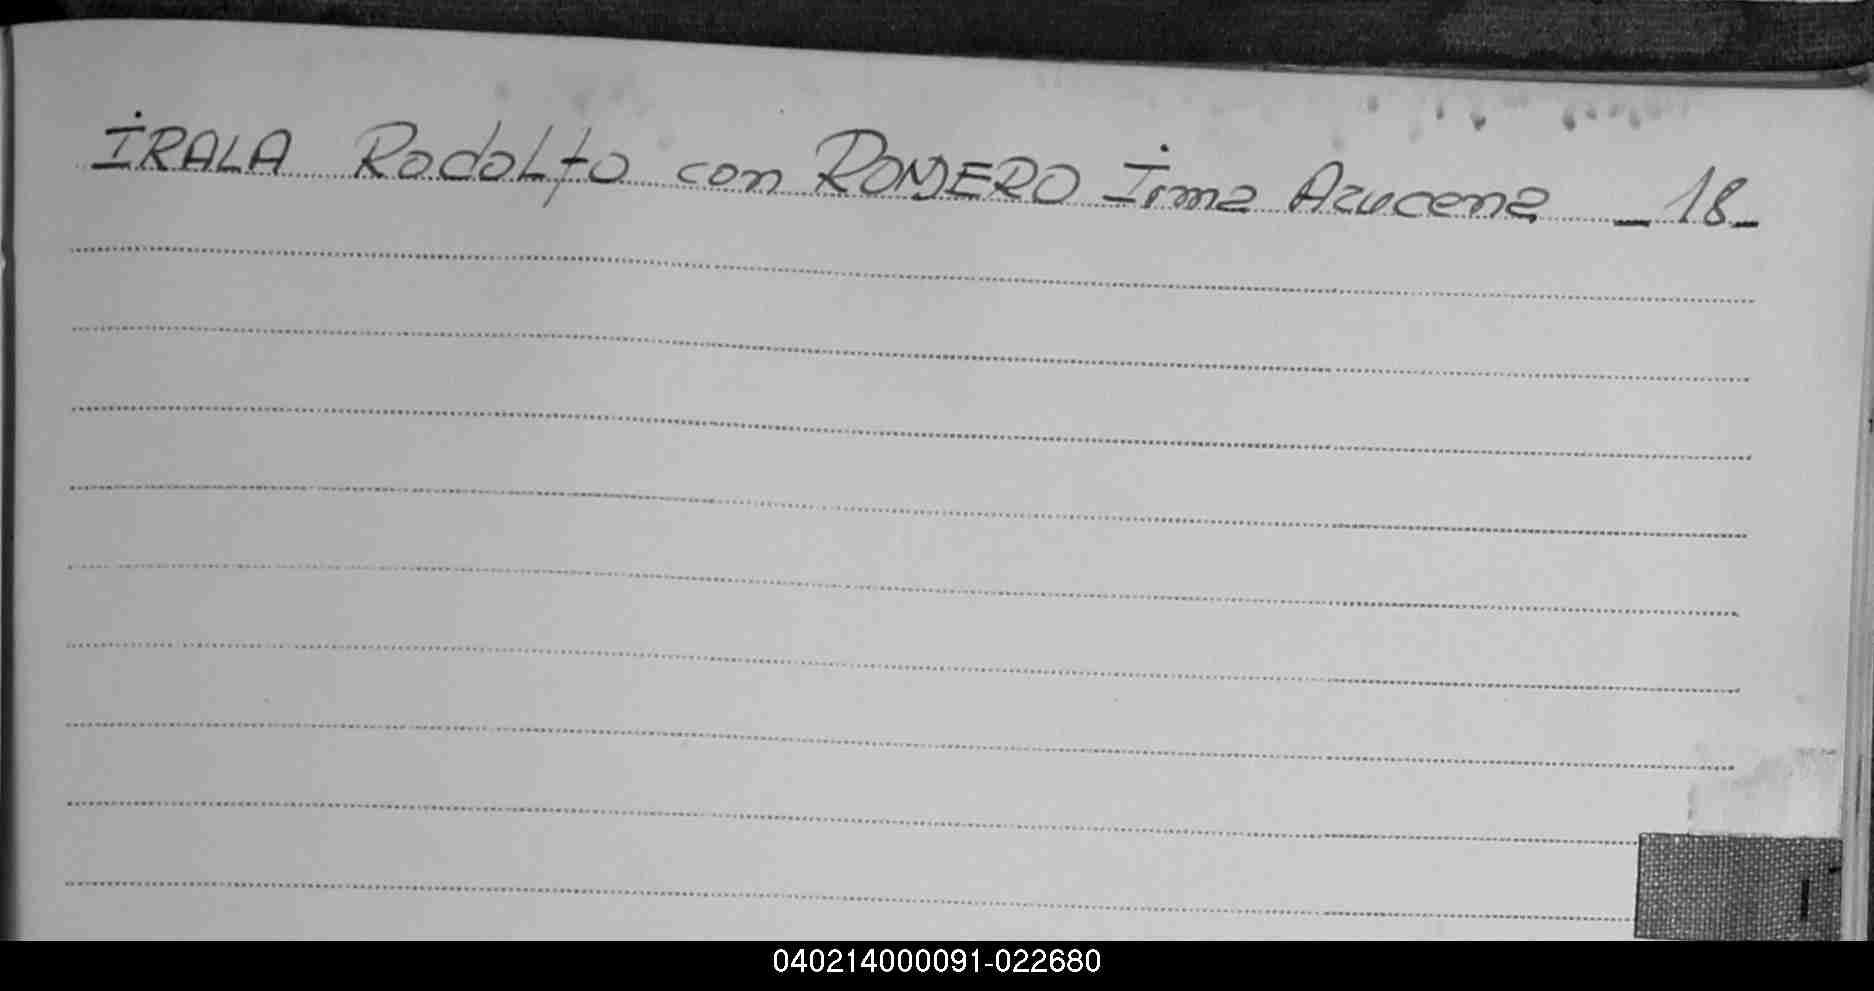 IRALA Rodolfo con ROMERO Irma Azucena _ 18 _
I
040214000091-022680